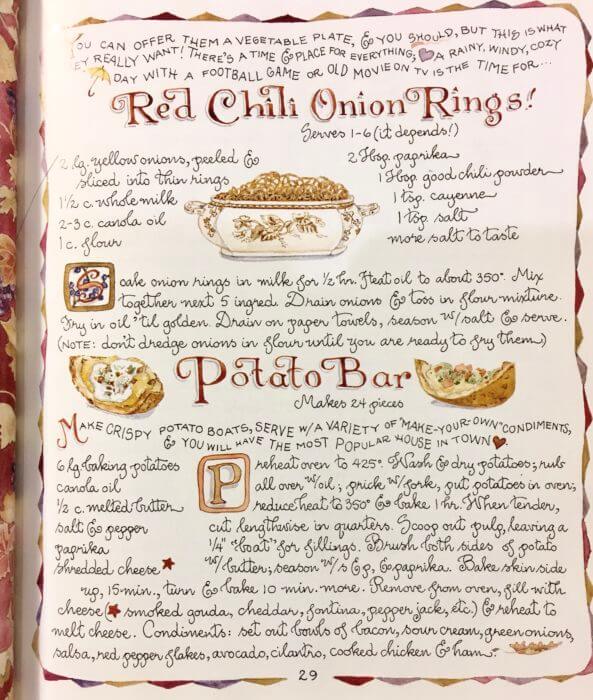 You can offer them a vegetable plate, & you should, but this is what
ey really want! There's a time & place for everything; a rainy, windy, cozy
day with a football game or old movie on TV is the time for...
Red Chili Onion Rings!
Serves 1-6 (it depends!)
2 lg. yellow onions, peeled &
sliced into thin rings
1 1/2 c. whole milk
2-3 c. canola oil
1 c. flour
2 Tbsp. paprika
1 Tbsp. good chili powder
1 tsp. cayenne
1 tsp. salt
more salt to taste
Soake onion rings in milk for 1/2 hr. Heat oil to about 350°. Mix
together next 5 ingred. Drain onions & toss in flour mixture.
Fry in oil 'til golden. Drain on paper towels, season w/salt & serve.
(NOTE: don't dredge onions in flour until you are ready to fry them.)
Potato Bar
Makes 24 pieces
Make crispy potato boats, serve w/ a variety of "make-your-own" condiments,
& you will have the most popular house in town.
6 lg. baking potatoes
canola oil
1/2 c. melted butter
salt & pepper
paprika
shredded cheese
Preheat oven to 425°. Wash & dry potatoes; rub
all over w/oil; prick w/fork, put potatoes in oven;
reduce heat to 350° & bake 1 hr. When tender,
cut lengthwise in quarters. Scoop out pulp, leaving a
1/4" "boat" for fillings. Brush both sides of potato
w/butter; season w/s & p, & paprika. Bake skin side
up, 15 min., turn & bake 10 min. more. Remove from oven, fill with
cheese (smoked gouda, cheddar, fontina, pepper jack, etc.) & reheat to
melt cheese. Condiments: set out bowls of bacon, sour cream, green onions,
salsa, red pepper flakes, avocado, cilantro, cooked chicken & ham.
29